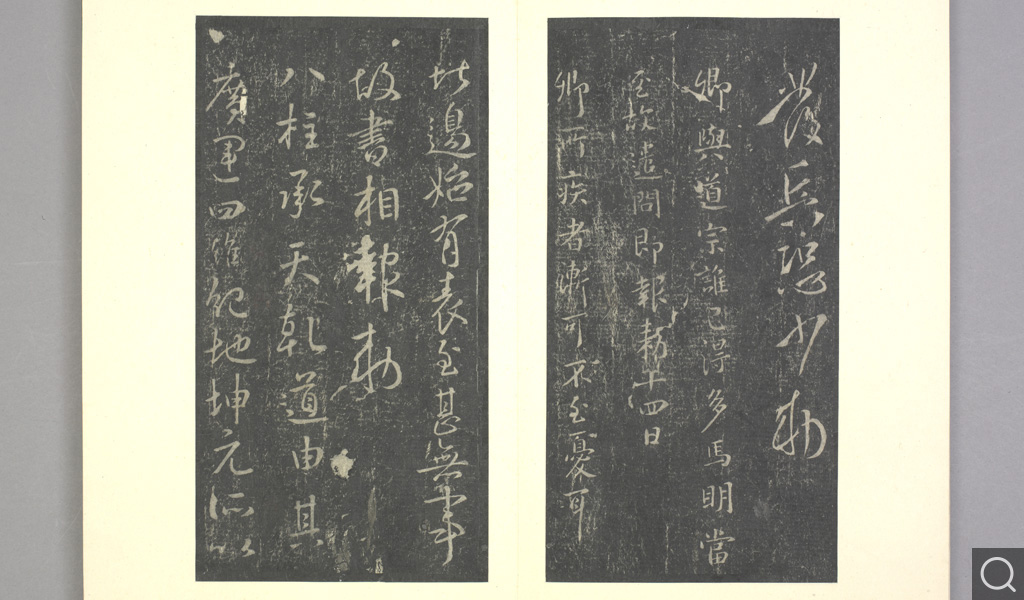 發兵恐少勅
卿與道宗誰已得多馬明當
至故遣問即報勅十四日
卿所疾者漸可不至憂耳
比邊始有表至甚無事
故書相報勅
八柱承天乾道由其
廣運四維紀地坤元所以